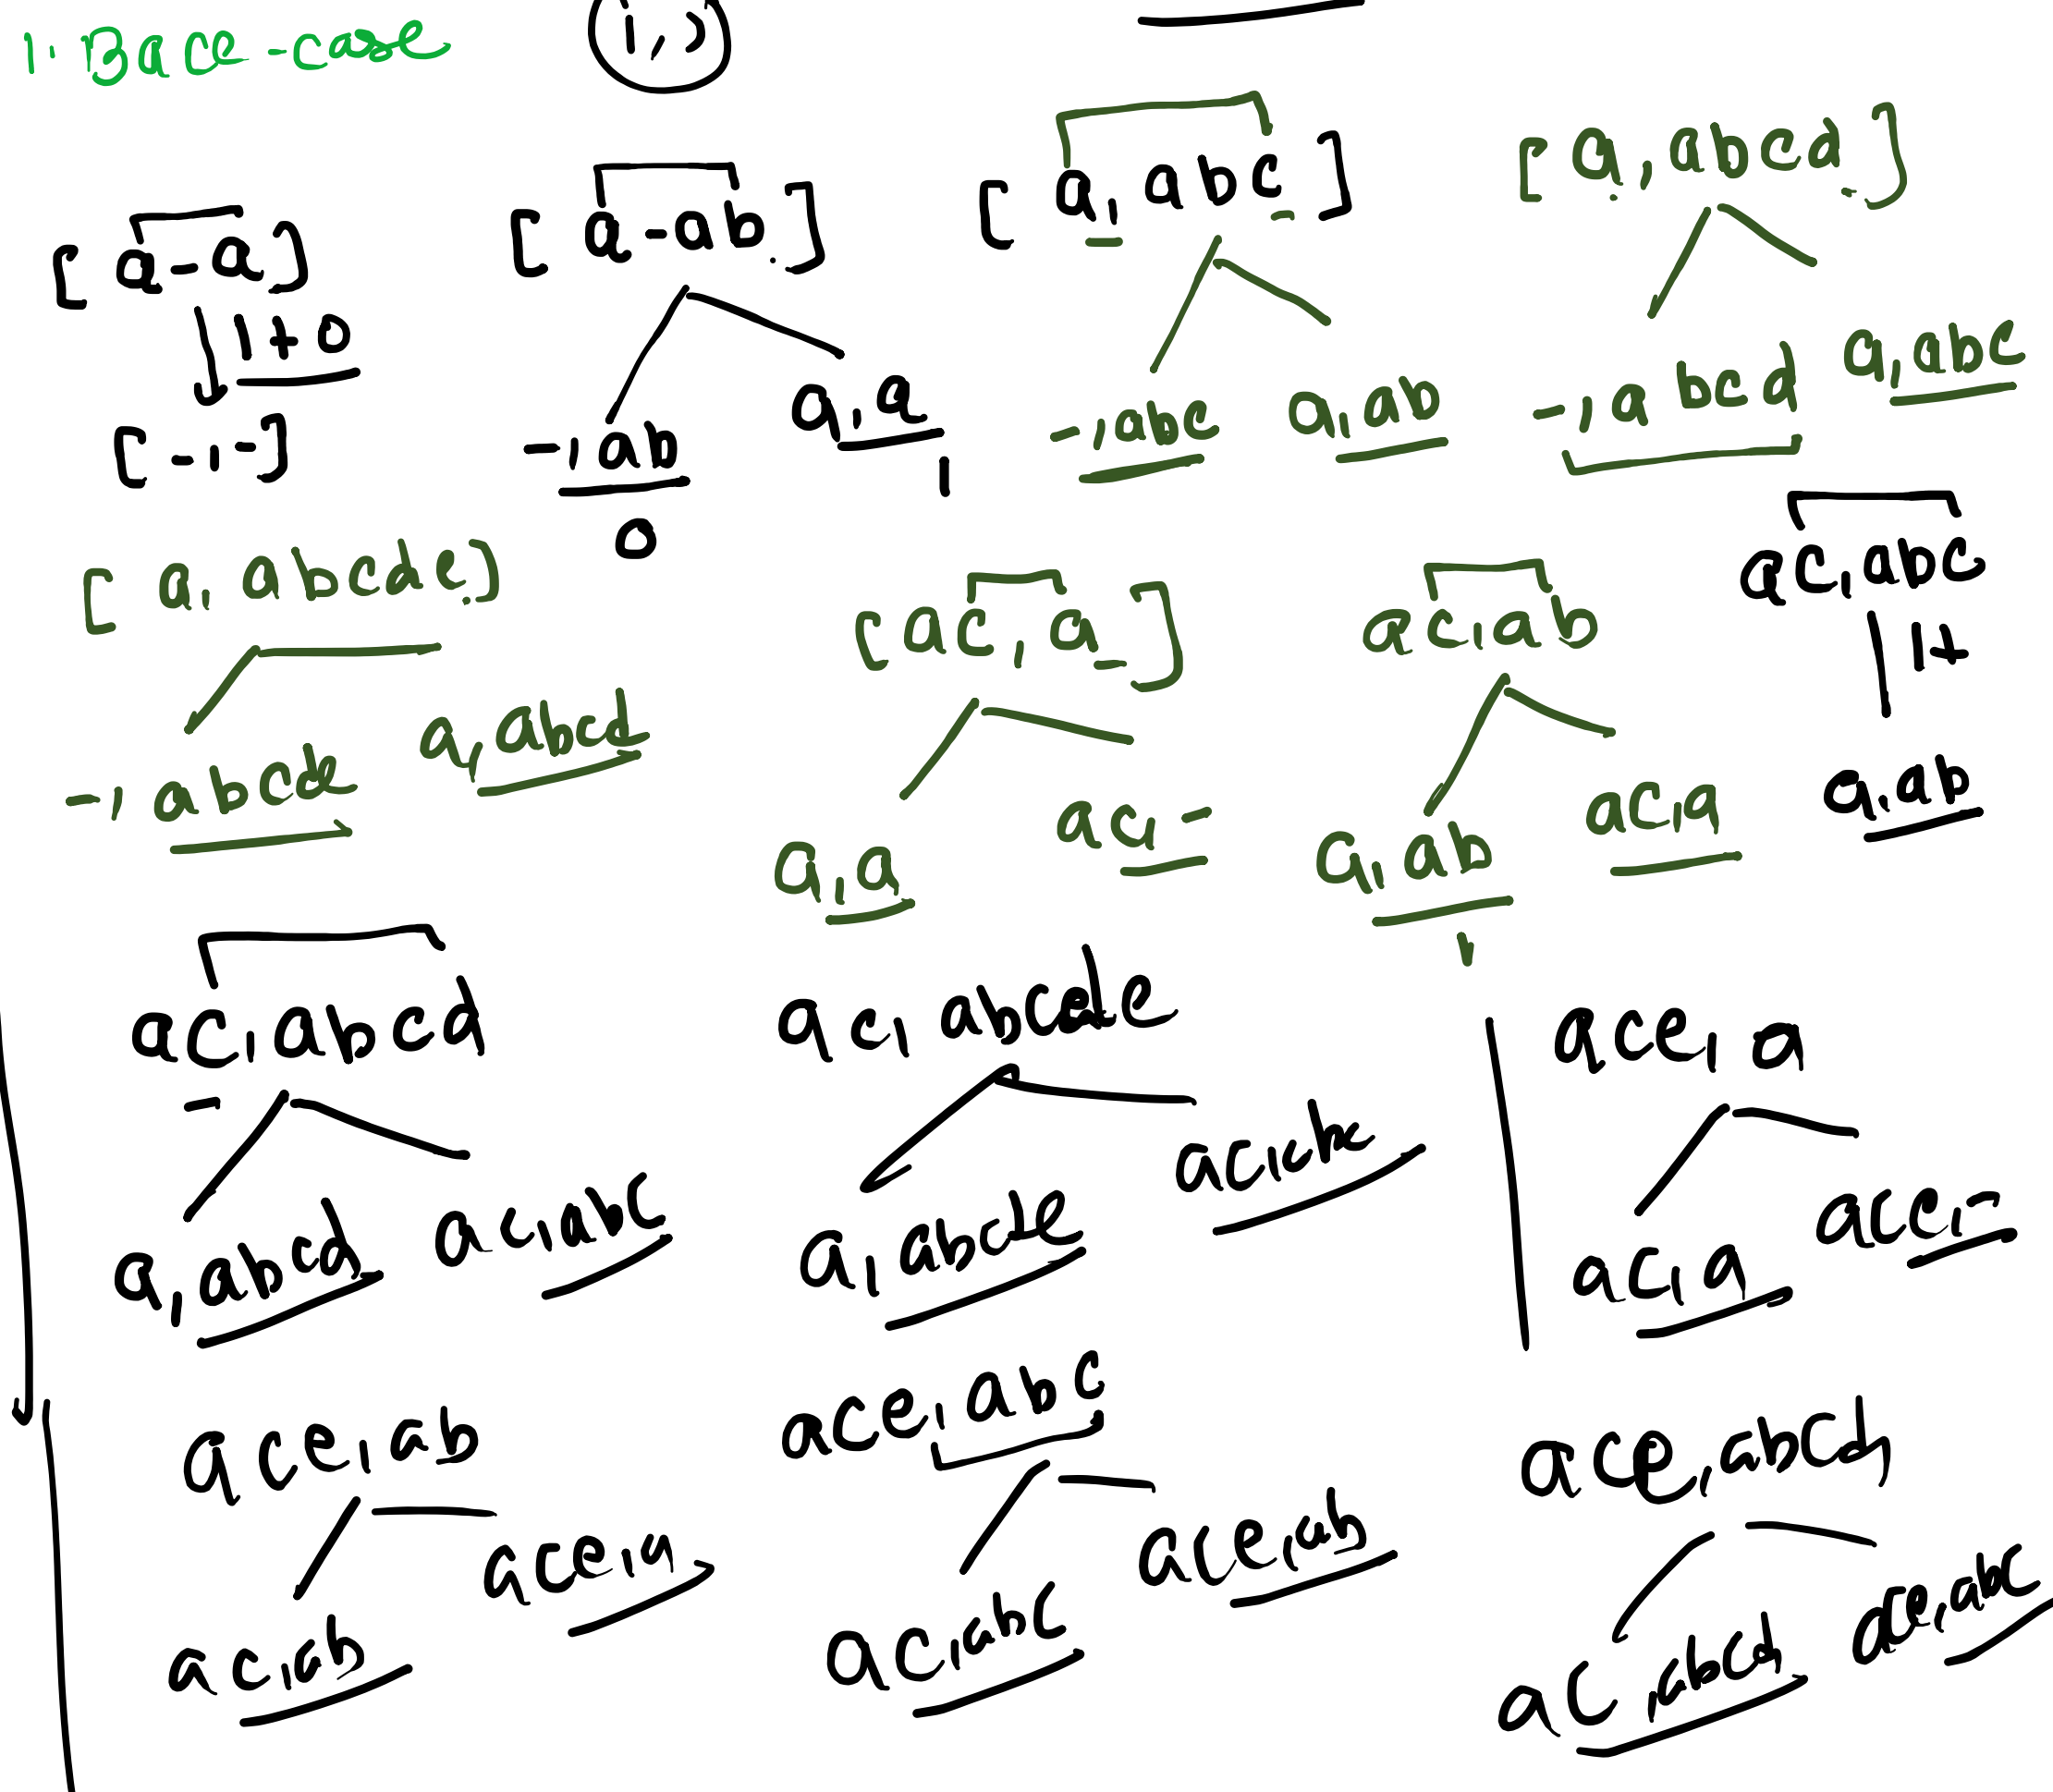 1. Bace-case
(i,)
[a-a]
1+0
[-,-]
[a-ab.]
-,ab
0
a,a
1
[a,abc]
-,abc
a,ab
[a,abcd]
-,abcd
a,abc
[a,abcde]
-,abcde
a,abcd
[ac,a]
a,a
ac,-
ac,ab
a,ab
1
ac,a
ac,abc
1+
a,ab
ac,abcd
a,abcd
ac,abc
ac,abcde
a,abcde
ace,a
ac,a
ace,-
ace,ab
ac,ab
ace,a
ace,abc
ac,abc
ace,ab
ace,abcd
ac,abcd
ace,abc